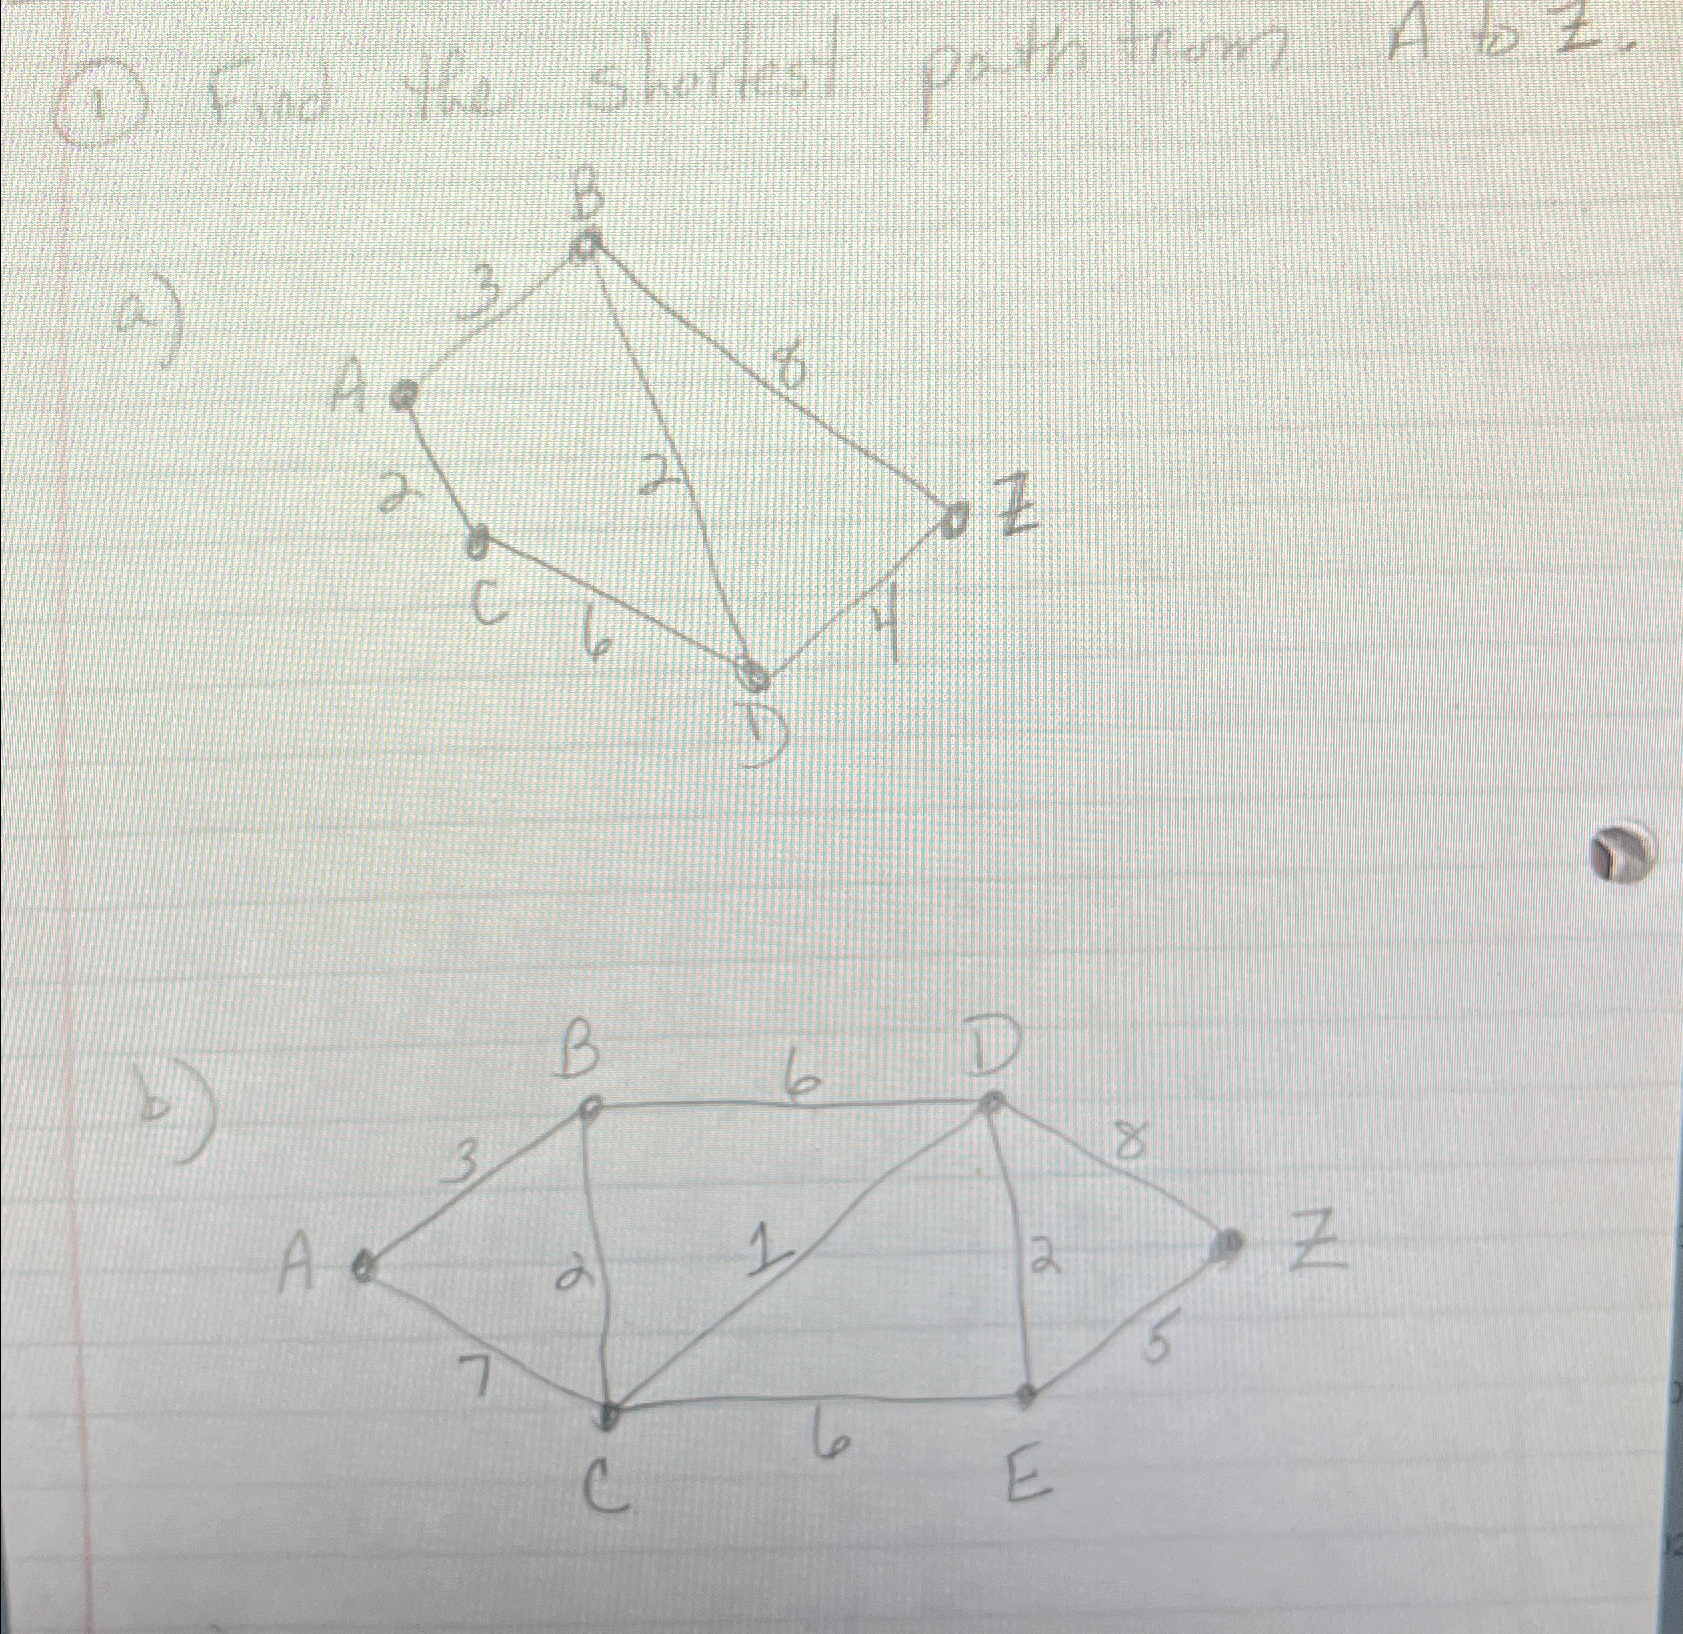 1 Find the shortest path from A to Z.
a)
B
3
8
A
2
2
Z
C
6
4
D
b)
B 6 D
3
8
A 2 1 2 Z
7
5
6
C E